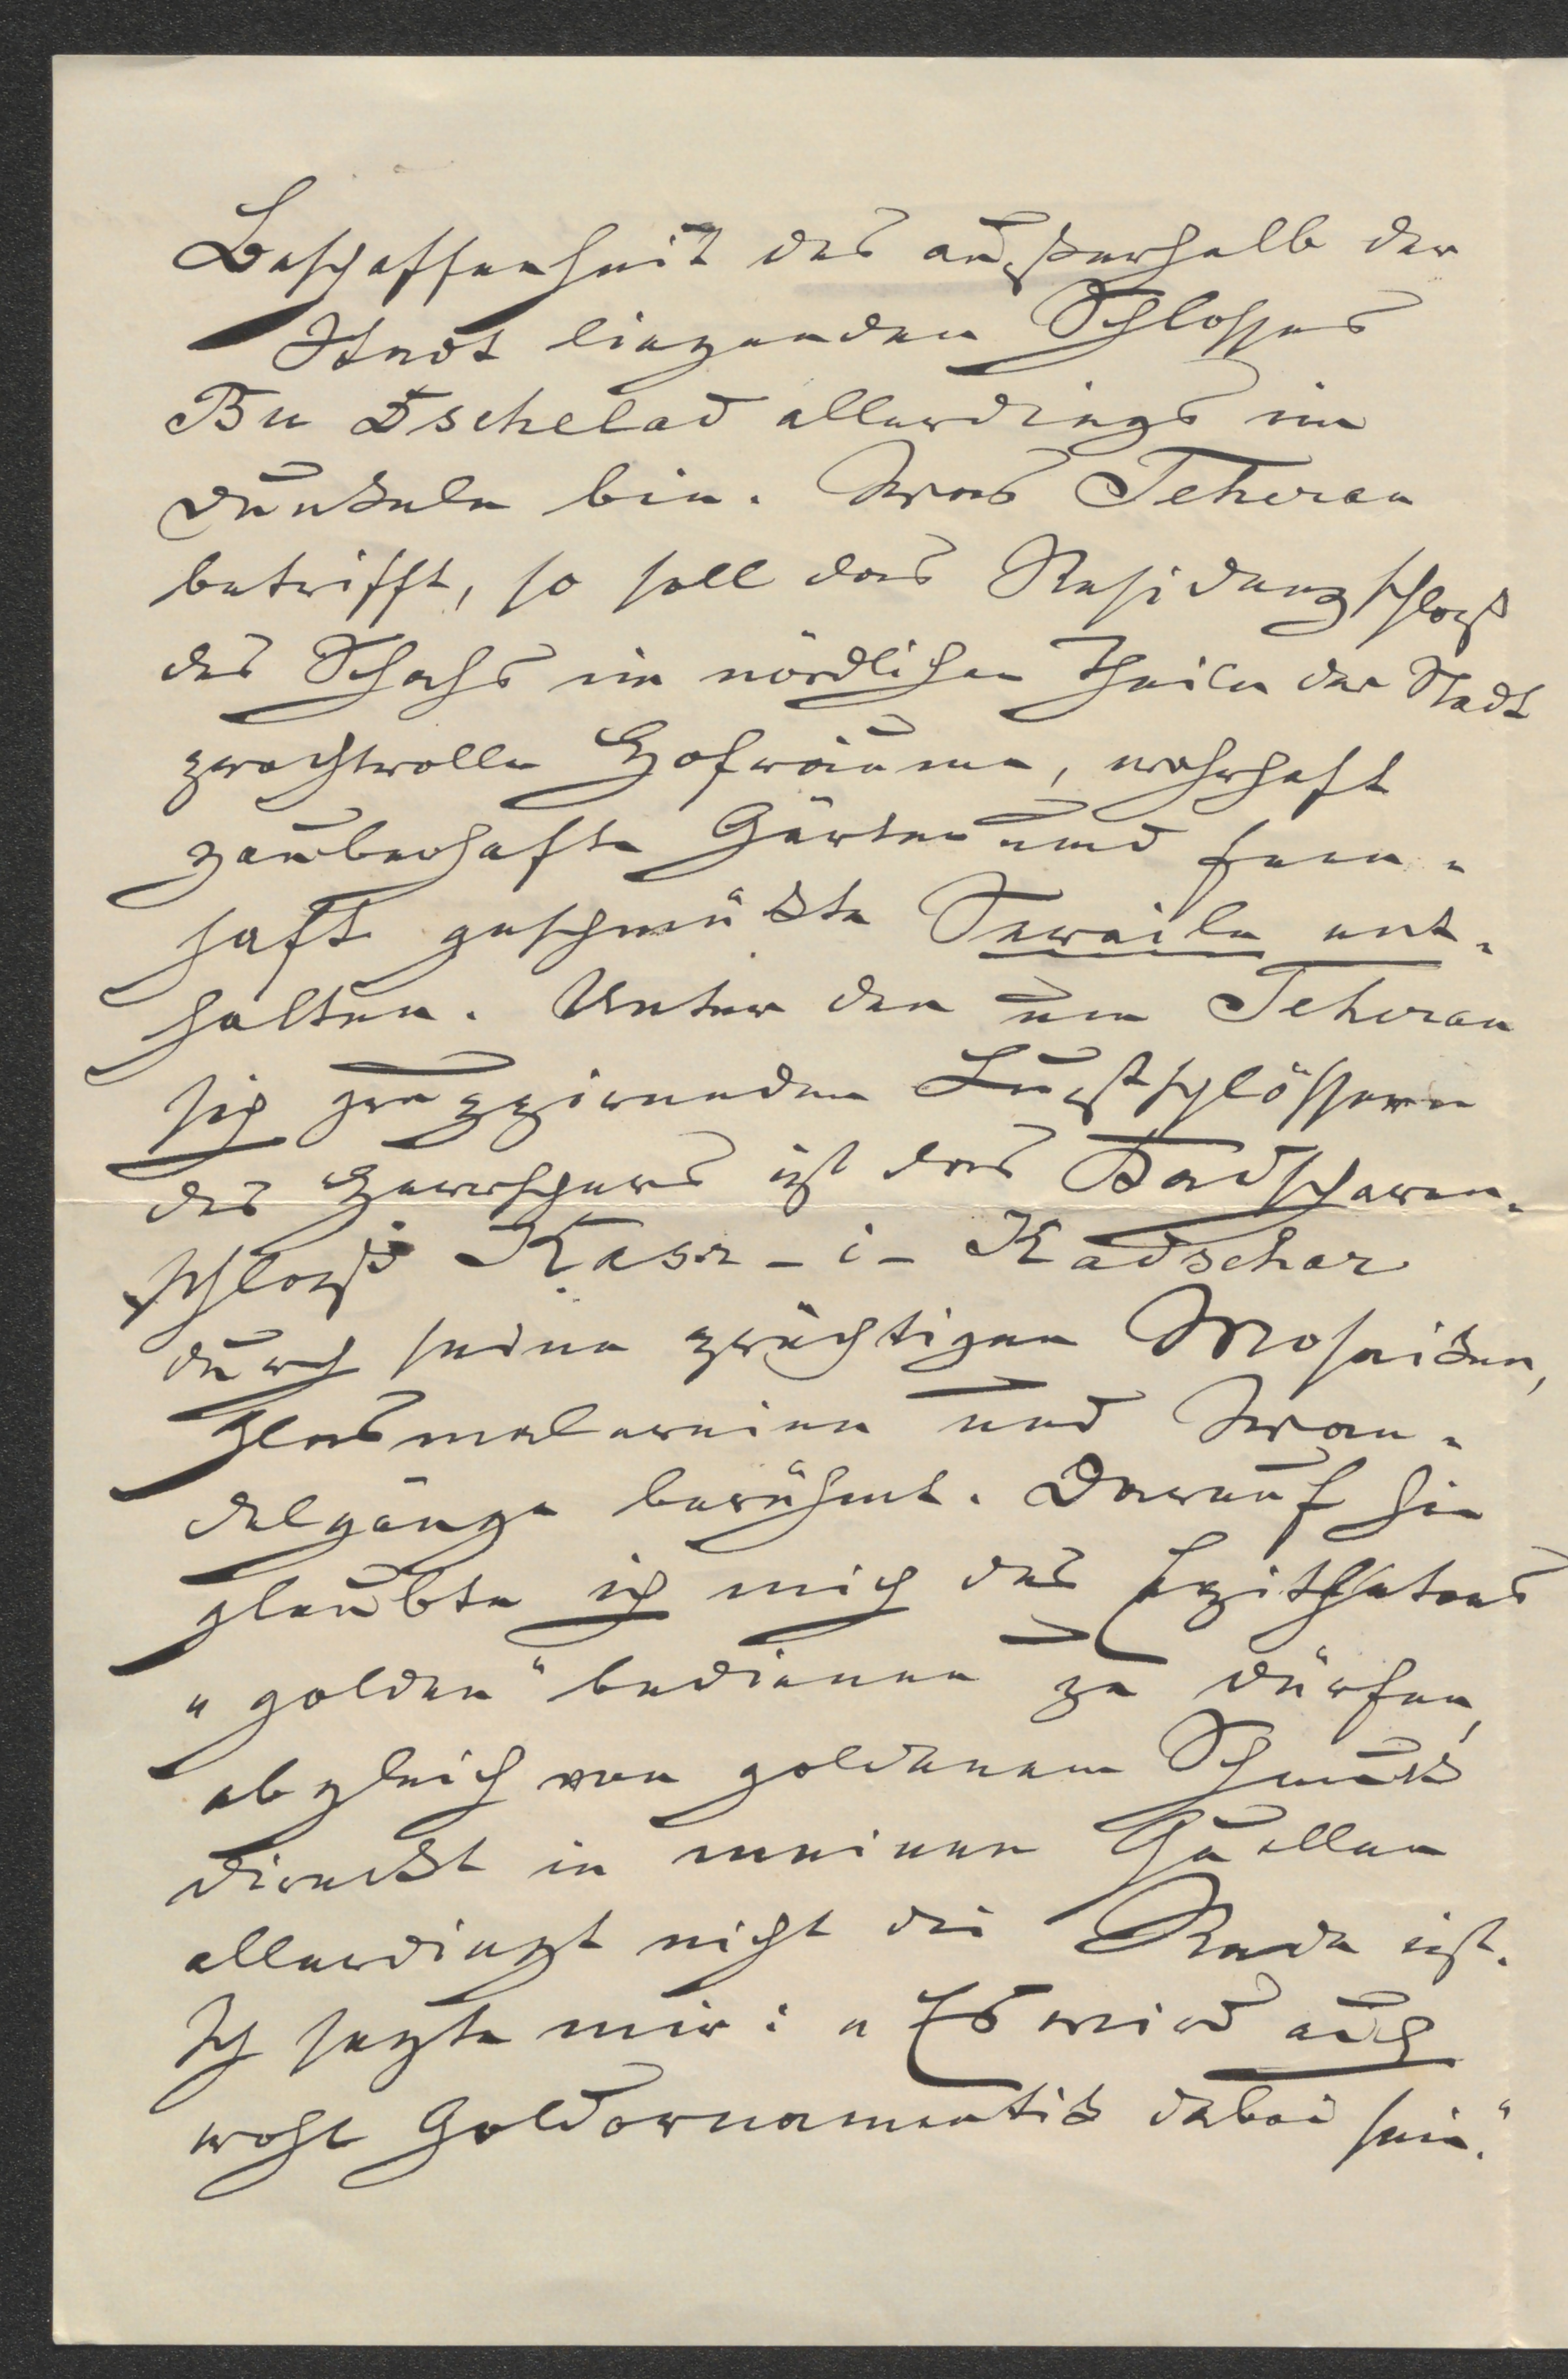 Beschaffenheit des außerhalb der
Stadt liegenden Schlosses
Bu Dschelad allerdings im
dunkeln bin. Was Teheran
betrifft, so soll das Residenzschloß
des Schahs im nördlichen Theile der Stadt
prachtvolle Hofräume, wahrhaft
zauberhafte Gärten und feen-
haft geschmückte Seraile ent-
halten. Unter den um Teheran
sich gruppirenden Lustschlössern
des Herrschers ist das Kadscharen-
schloß Kasr-i-Kadschar
durch seine prächtigen Mosaiken,
Glasmalereien und Wan-
delgänge berühmt. Darauf hin
glaubte ich mich des Epithetons
„golden“ bedienen zu dürfen,
obgleich von goldenem Schmuck
direckt in meinen Quellen
allerdingst nicht die Rede ist.
Ich sagte mir: „Es wird auch
wohl Goldornamentik dabei sein.“